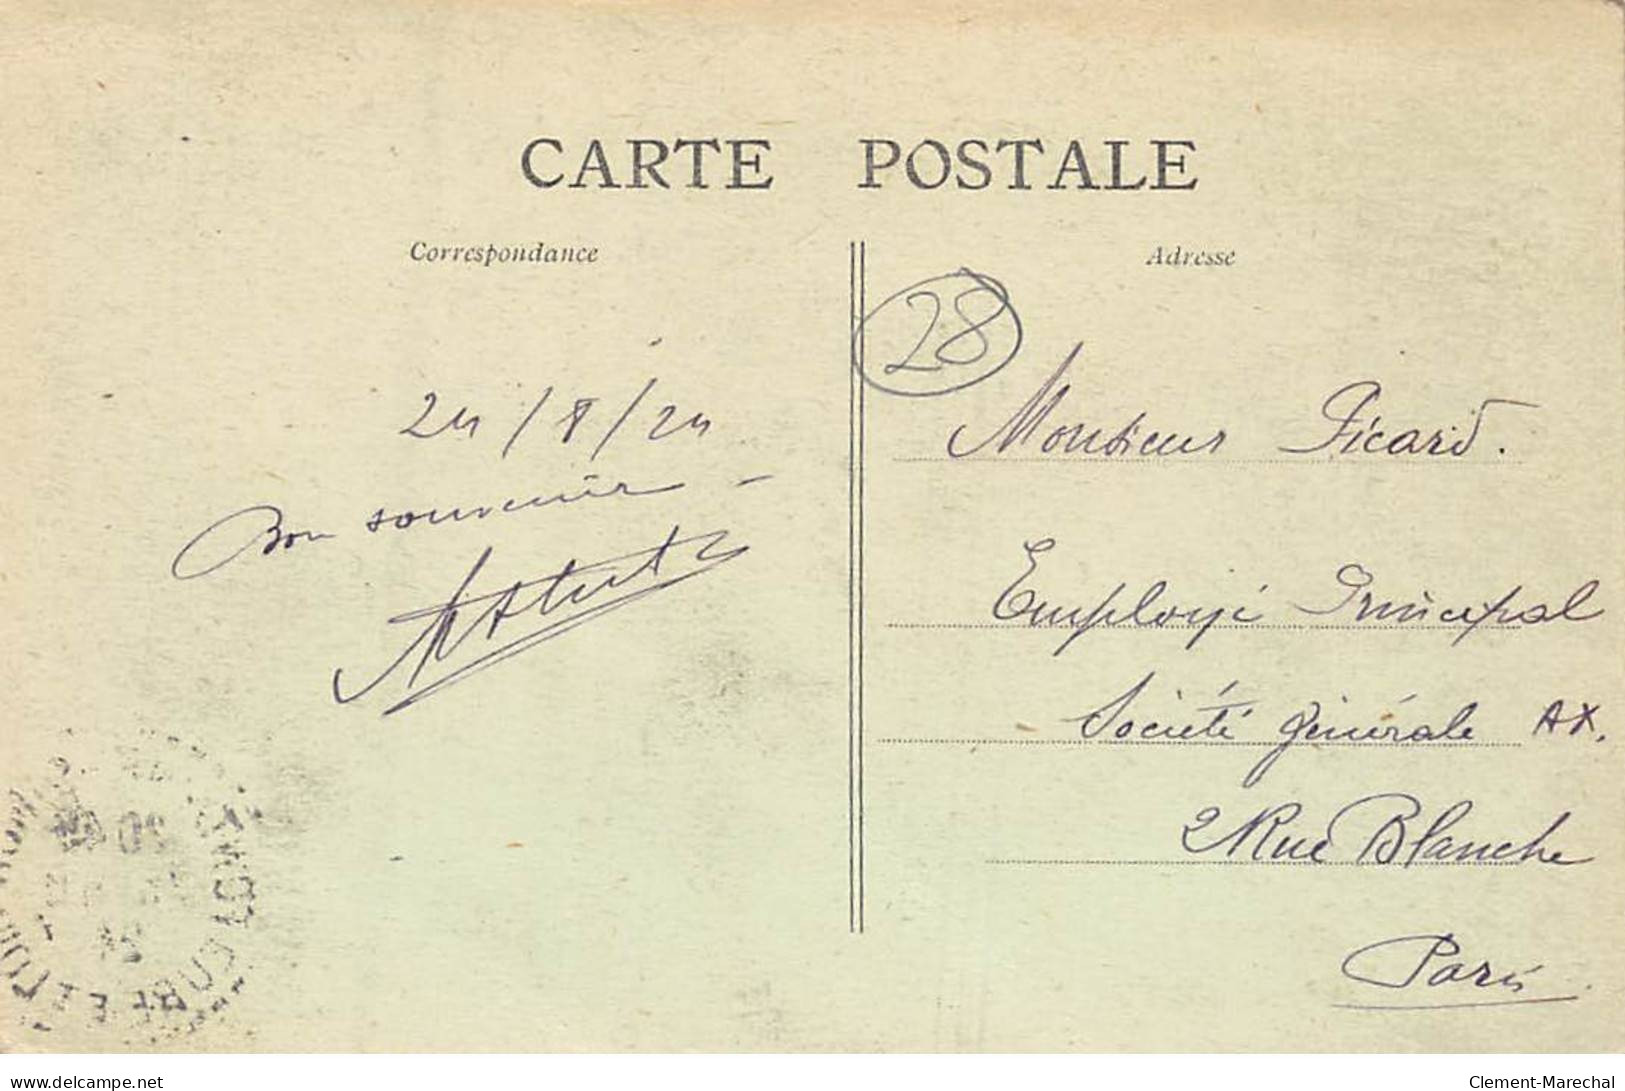 CARTE POSTALE
Correspondance
Adresse
28
24/8/24
Bon souvenir -
Monsieur Picard.
Employé Principal
Société générale AX.
2 Rue Blanche
Paris
www.delcampe.net
Clement-Marechal